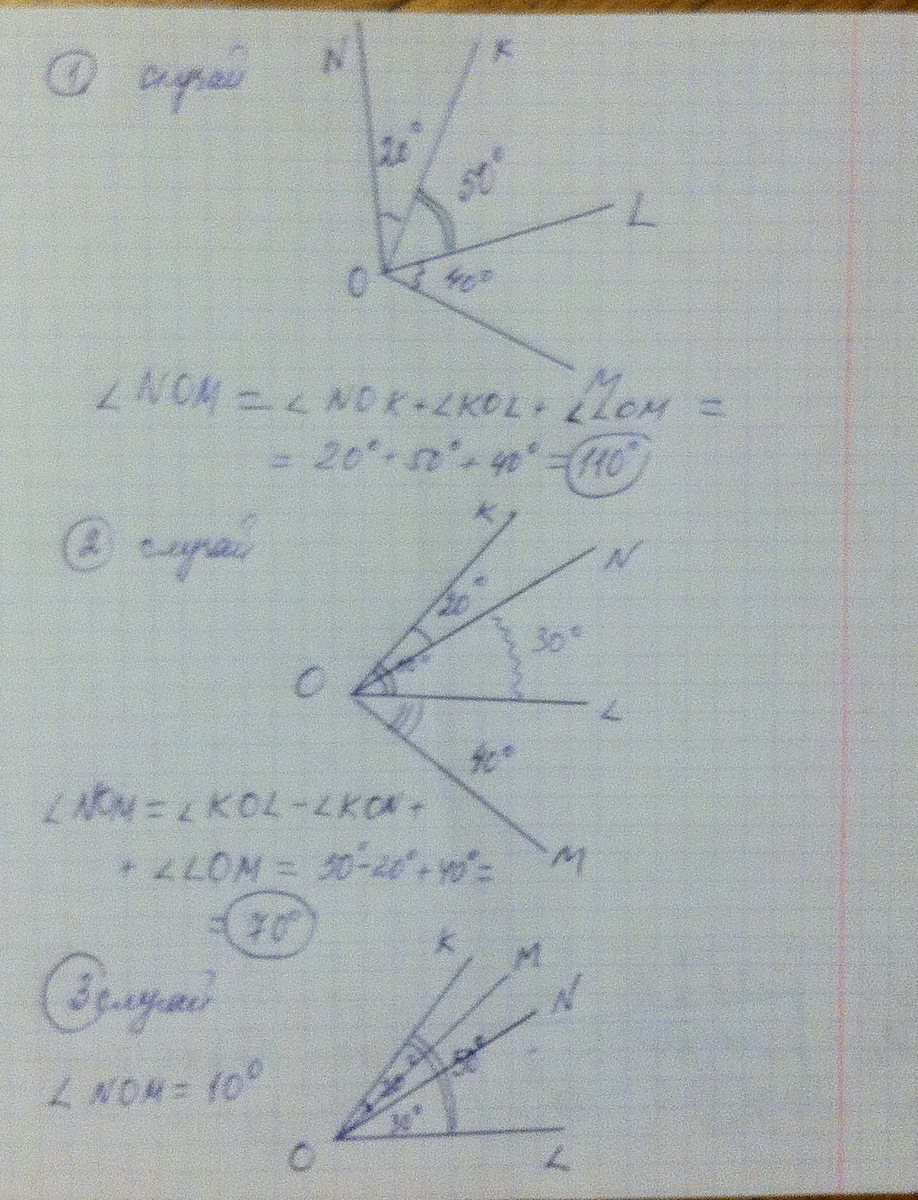 1 случай
N K
20°
50°
L
O 40°
M
∠ NOM = ∠ NOK + ∠KOL + ∠LOM =
= 20° + 50° + 40° = 110°
2 случай
K
N
20°
30°
O
L
40°
M
∠NOM = ∠KOL - ∠KON +
+ ∠LOM = 50° - 20° + 40° =
= 70°
K
M
3 случай
N
50°
∠ NOM = 10°
30°
O L